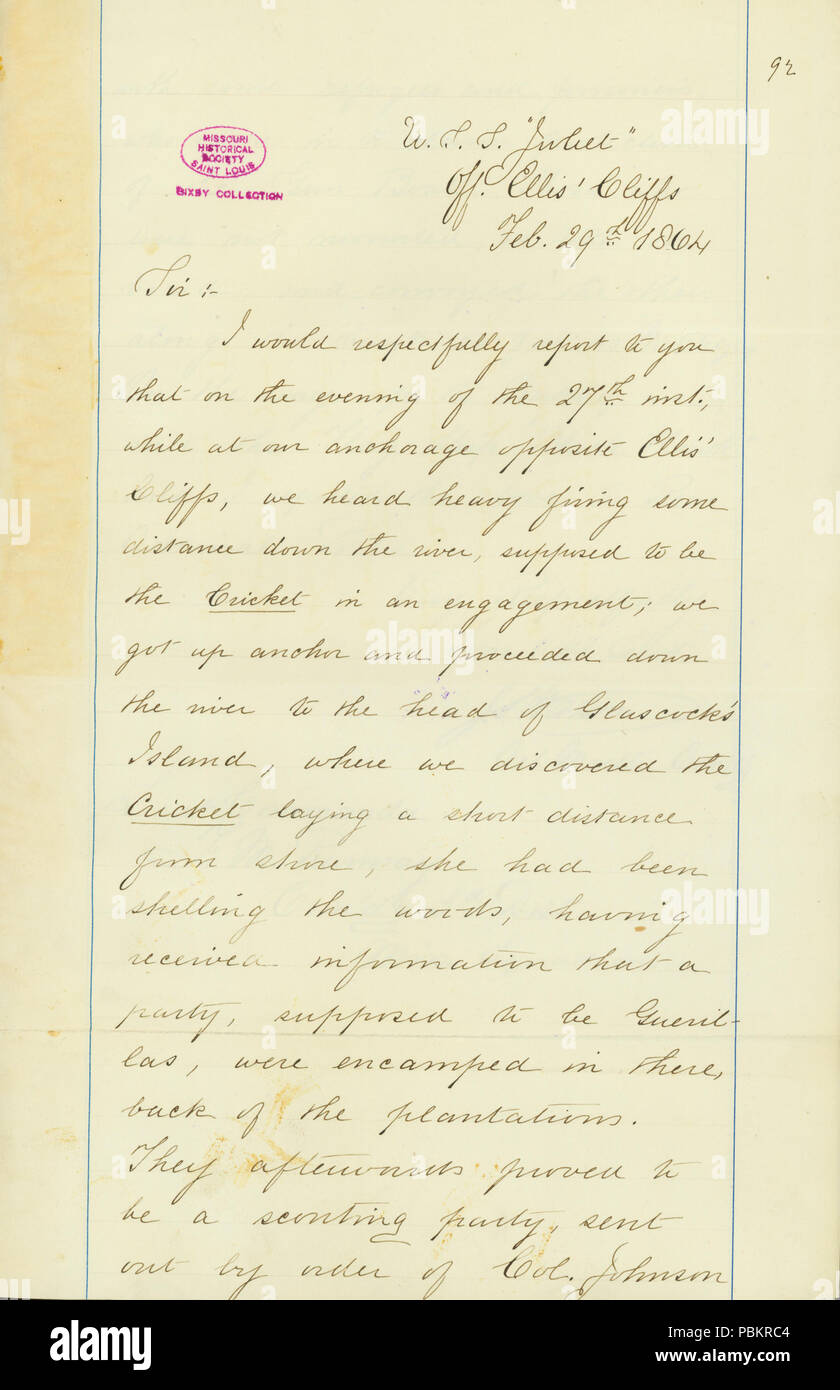 92
MISSOURI
HISTORICAL
SOCIETY
SAINT LOUIS
BIXBY COLLECTION
U. S. S. "Juliet"
Off. Ellis' Cliffs
Feb. 29th 1864
Sir:-
I would respectfully report to you
that on the evening of the 27th inst.,
while at our anchorage opposite Ellis'
Cliffs, we heard heavy firing some
distance down the river, supposed to be
the Cricket in an engagement; we
got up anchor and proceeded down
the river to the head of Glascock's
Island, where we discovered the
Cricket laying a short distance
from shore, she had been
shelling the woods, having
received information that a
party, supposed to be Gueril-
las, were encamped in there,
back of the plantations.
They afterwards proved to
be a scouting party, sent
out by order of Col. Johnson
alamy
Image ID: PBKRC4
www.alamy.com